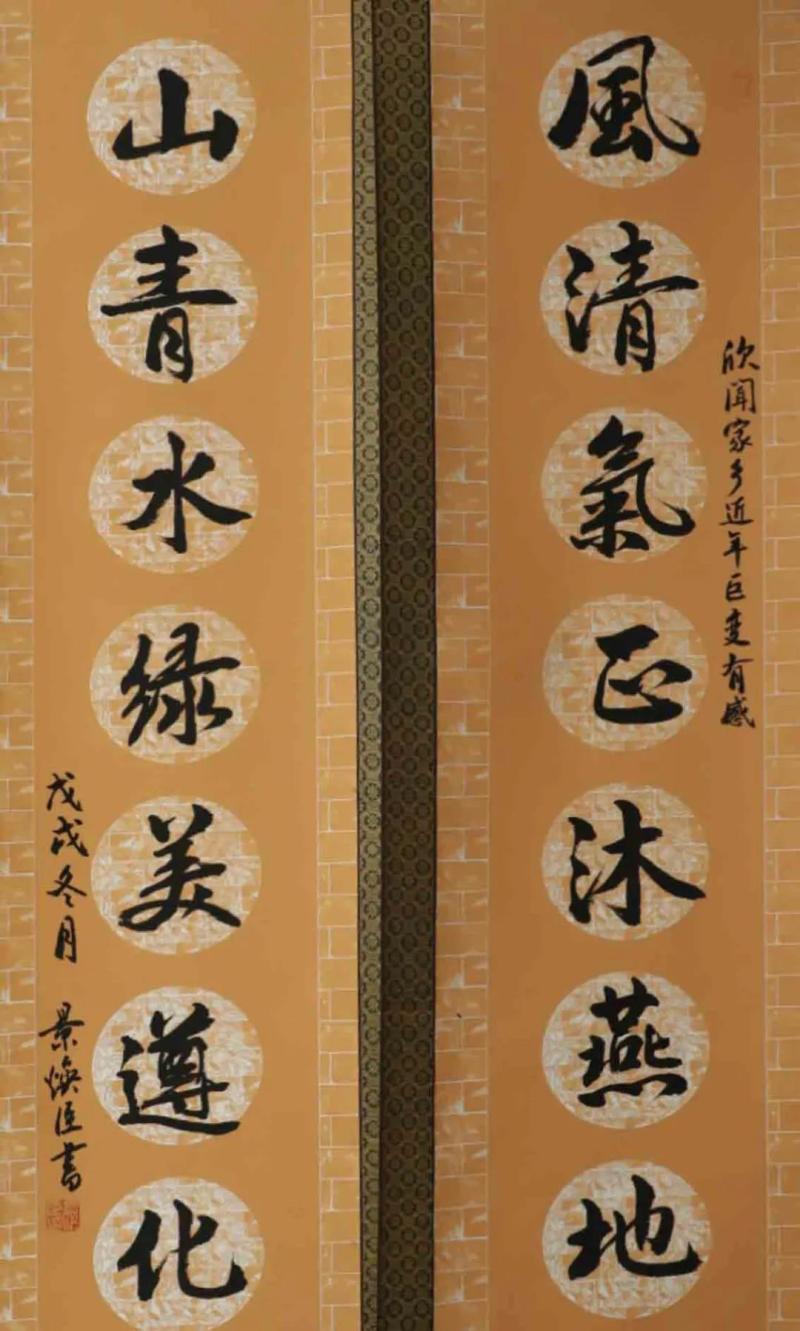 欣闻家乡近年巨变有感
風清氣正沐燕地
山青水绿美遵化
戊戌冬月 景焕臣書